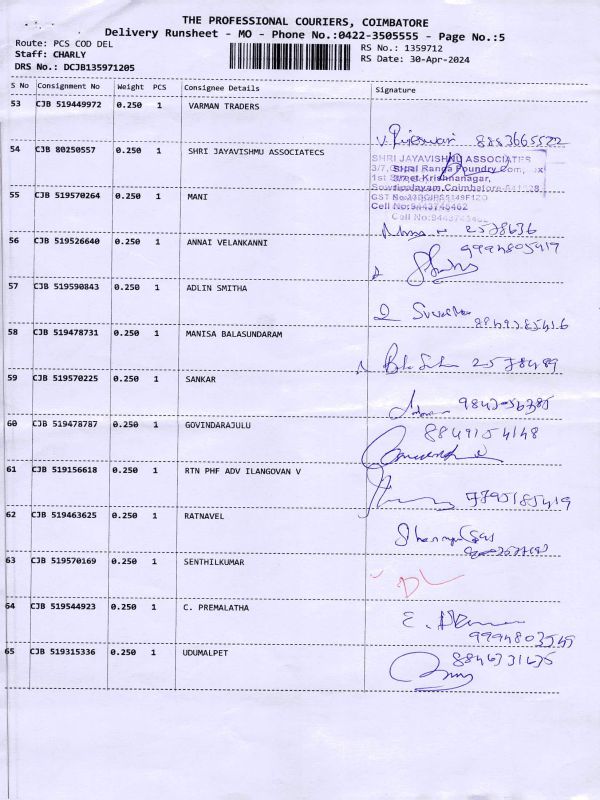 THE PROFESSIONAL COURIERS, COIMBATORE
Delivery Runsheet - MO - Phone No.:0422-3505555 - Page No.:5
Route: PCS COD DEL
RS No.: 1359712
Staff: CHARLY
RS Date: 30-Apr-2024
DRS No.: DCJB135971205
S No Consignment No Weight PCS Consignee Details Signature
53 CJB 519449972 0.250 1 VARMAN TRADERS
8883665522
54 CJB 80250557 0.250 1 SHRI JAYAVISHMU ASSOCIATECS
SHRI JAYAVISHNU ASSOCIATES
1st Street Krishnanagar,
Cell No:9443745462
55 CJB 519570264 0.250 1 MANI
2578636
56 CJB 519526640 0.250 1 ANNAI VELANKANNI
9994805417
57 CJB 519590843 0.250 1 ADLIN SMITHA
58 CJB 519478731 0.250 1 MANISA BALASUNDARAM
2578489
59 CJB 519570225 0.250 1 SANKAR
60 CJB 519478787 0.250 1 GOVINDARAJULU
8849154148
61 CJB 519156618 0.250 1 RTN PHF ADV ILANGOVAN V
7795185419
62 CJB 519463625 0.250 1 RATNAVEL
63 CJB 519570169 0.250 1 SENTHILKUMAR
DL
64 CJB 519544923 0.250 1 C. PREMALATHA
9994803549
65 CJB 519315336 0.250 1 UDUMALPET
8846731635